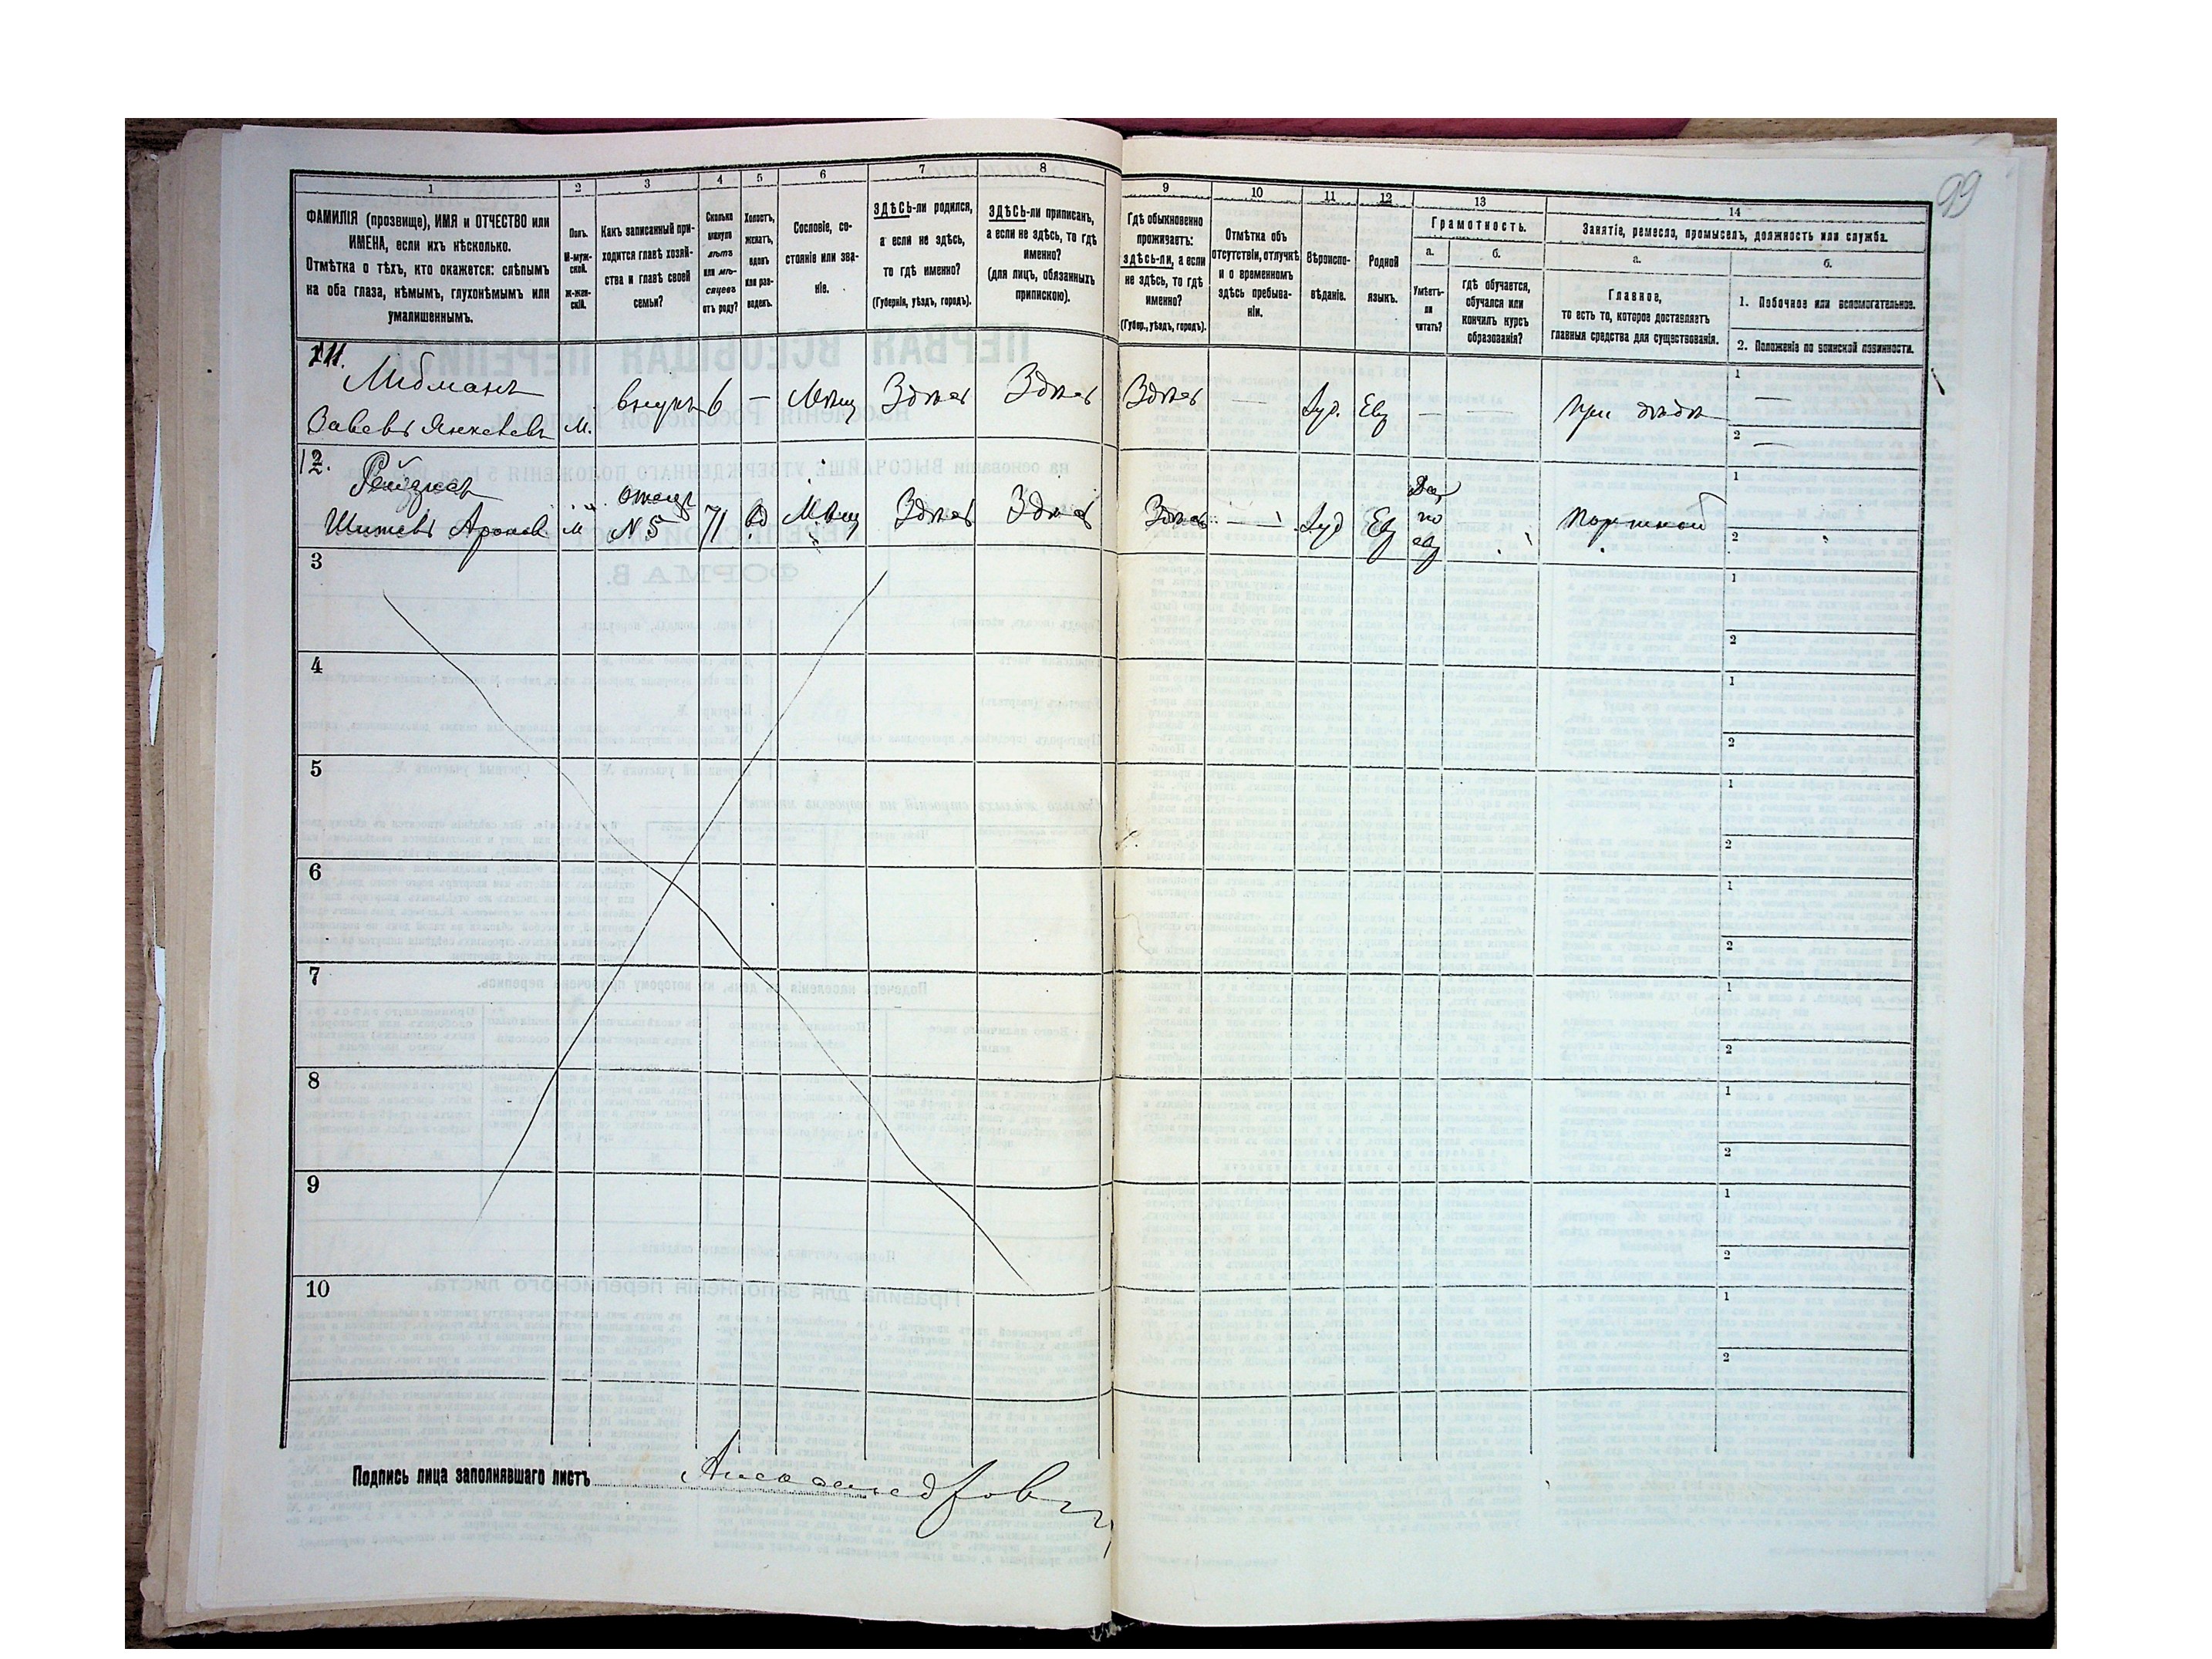 99
1
2
3
4
5
6
7
8
9
10
11
12
13
14
ФАМИЛІЯ (прозвище), ИМЯ и ОТЧЕСТВО или
ИМЕНА, если ихъ нѣсколько.
Отмѣтка о тѣхъ, кто окажется: слѣпымъ
на оба глаза, нѣмымъ, глухонѣмымъ или
умалишеннымъ.
Полъ.
М-муж-
ской.
ж-жен-
скій.
Какъ записанный при-
ходится главѣ хозяй-
ства и главѣ своей
семьи?
Сколько
минуло
лѣтъ
или мѣ-
сяцевъ
отъ роду?
Холостъ,
женатъ,
вдовъ
или раз-
веденъ.
Сословіе, со-
стояніе или зва-
ніе.
ЗДѢСЬ-ли родился,
а если не здѣсь,
то гдѣ именно?
(Губернія, уѣздъ, городъ).
ЗДѢСЬ-ли приписанъ,
а если не здѣсь, то гдѣ
именно?
(для лицъ, обязанныхъ
припискою).
Гдѣ обыкновенно
проживаетъ:
здѣсь-ли, а если
не здѣсь, то гдѣ
именно?
(Губер., уѣздъ, городъ).
Отмѣтка объ
отсутствіи, отлучкѣ
и о временномъ
здѣсь пребыва-
ніи.
Вѣроиспо-
вѣданіе.
Родной
языкъ.
Грамотность.
а.
Умѣетъ-
ли
читать?
б.
гдѣ обучается,
обучался или
кончилъ курсъ
образованія?
Занятіе, ремесло, промыселъ, должность или служба.
а.
Главное,
то есть то, которое доставляетъ
главныя средства для существованія.
б.
1. Побочное или вспомогательное.
2. Положеніе по воинской повинности.
11.
Либманъ
М. внукъ 6 — Мѣщ Здѣсь Здѣсь Здѣсь — Іуд. Евр — — при дѣдѣ
1 —
2 —
12.
Шимонъ Ароновъ М отецъ
№ 5 71 вд Мѣщ Здѣсь Здѣсь Здѣсь — Іуд Евр Да
по
евр портной
1
2
3
1
2
4
1
2
5
1
2
6
1
2
7
1
2
8
1
2
9
1
2
10
1
2
Подпись лица заполнявшаго листъ